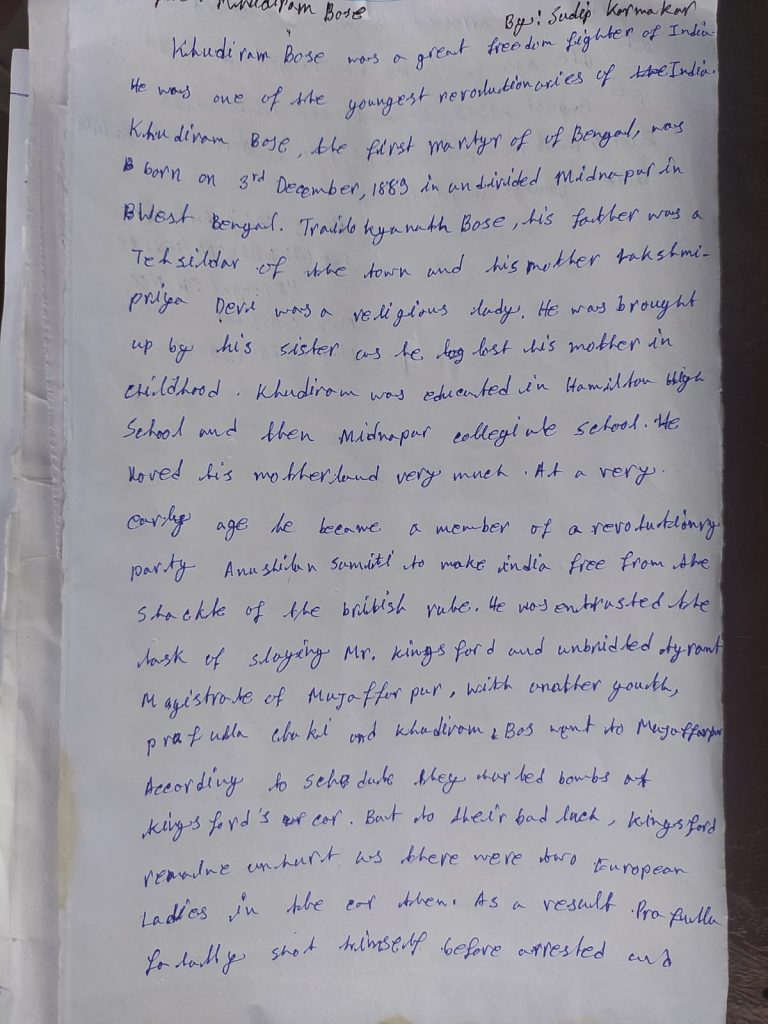 Khudiram Bose
By: Sudip Karmakar
Khudiram Bose was a great freedom fighter of India.
He was one of the youngest revolutionaries of the India.
Khudiram Bose, the first martyr of of Bengal, was
born on 3rd December, 1889 in undivided Midnapur in
West Bengal. Trailokyanath Bose, his father was a
Tehsildar of the town and his mother Lakshmi-
priya Devi was a religious lady. He was brought
up by his sister as he lost his mother in
childhood. Khudiram was educated in Hamilton High
School and then Midnapur collegiate school. He
loved his motherland very much. At a very
early age he became a member of a revolutionry
party Anushilan Samiti to make india free from the
shackle of the british rule. He was entrusted the
task of slaying Mr. Kings ford and unbridled tyrant
Magistrate of Mujaffarpur, with another youth,
prafulla chaki and Khudiram Bos went to Mujaffarpur
According to schedule they hurled bombs at
kings ford's car. But to their bad luck, Kingsford
remaine unhurt as there were two European
Ladies in the car then. As a result Prafulla
fatally shot himself before arrested and